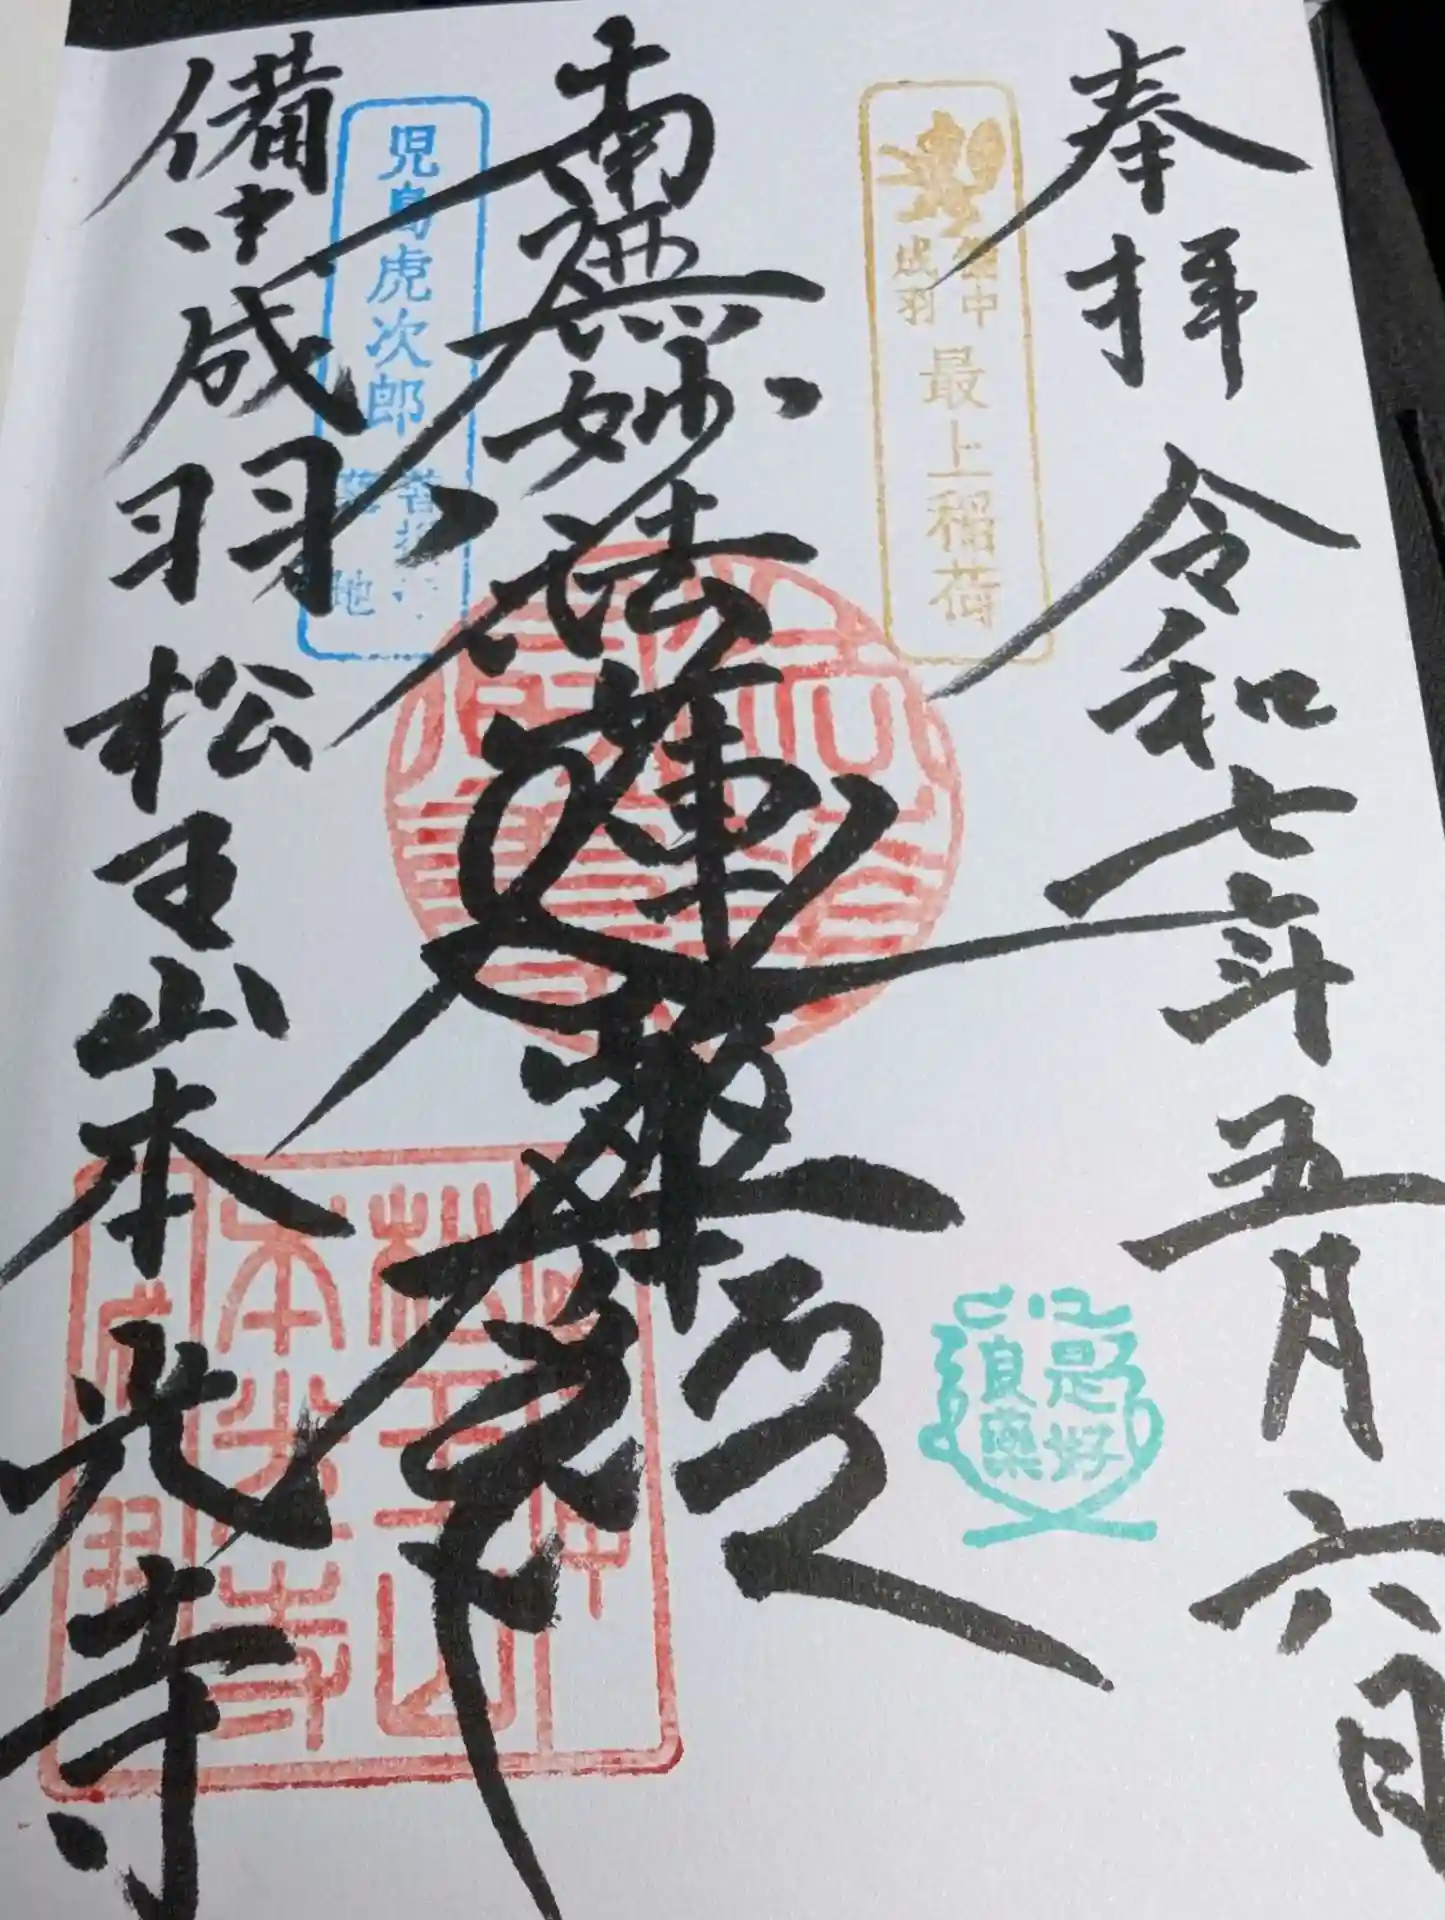 奉拝 令和七年五月六日
備中
成羽
最上稲荷
是好
良薬
南無妙法蓮華経
児島虎次郎
菩提寺
墓地
備中成羽 松王山本光寺
松王山
本光寺